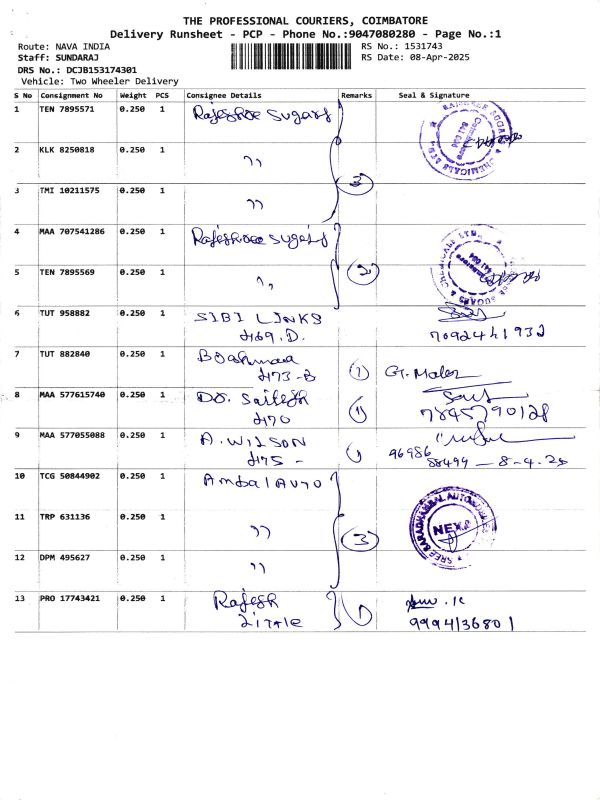 THE PROFESSIONAL COURIERS, COIMBATORE
Delivery Runsheet - PCP - Phone No.:9047080280 - Page No.:1
Route: NAVA INDIA
RS No.: 1531743
Staff: SUNDARAJ
RS Date: 08-Apr-2025
DRS No.: DCJB153174301
Vehicle: Two Wheeler Delivery
S No Consignment No Weight PCS Consignee Details Remarks Seal & Signature
1 TEN 7895571 0.250 1 Rajeshree Sugars
2 KLK 8250818 0.250 1 ,,
3 TMI 10211575 0.250 1 ,, 3
4 MAA 707541286 0.250 1 Rajeshree Sugars
5 TEN 7895569 0.250 1 ,, 2
6 TUT 958882 0.250 1 SIBI LINKS
469.D. 7092441932
7 TUT 882840 0.250 1
473-B 1
8 MAA 577615740 0.250 1 Dr. Sailesh
470 1 7845790128
9 MAA 577055088 0.250 1 A. WILSON
475 - 1 96986
88499 - 8-4.25
10 TCG 50844902 0.250 1 Ambal Auto
11 TRP 631136 0.250 1 ,, 3 NEXA
12 DPM 495627 0.250 1 ,,
13 PRO 17743421 0.250 1 Rajesh 1
9994136801